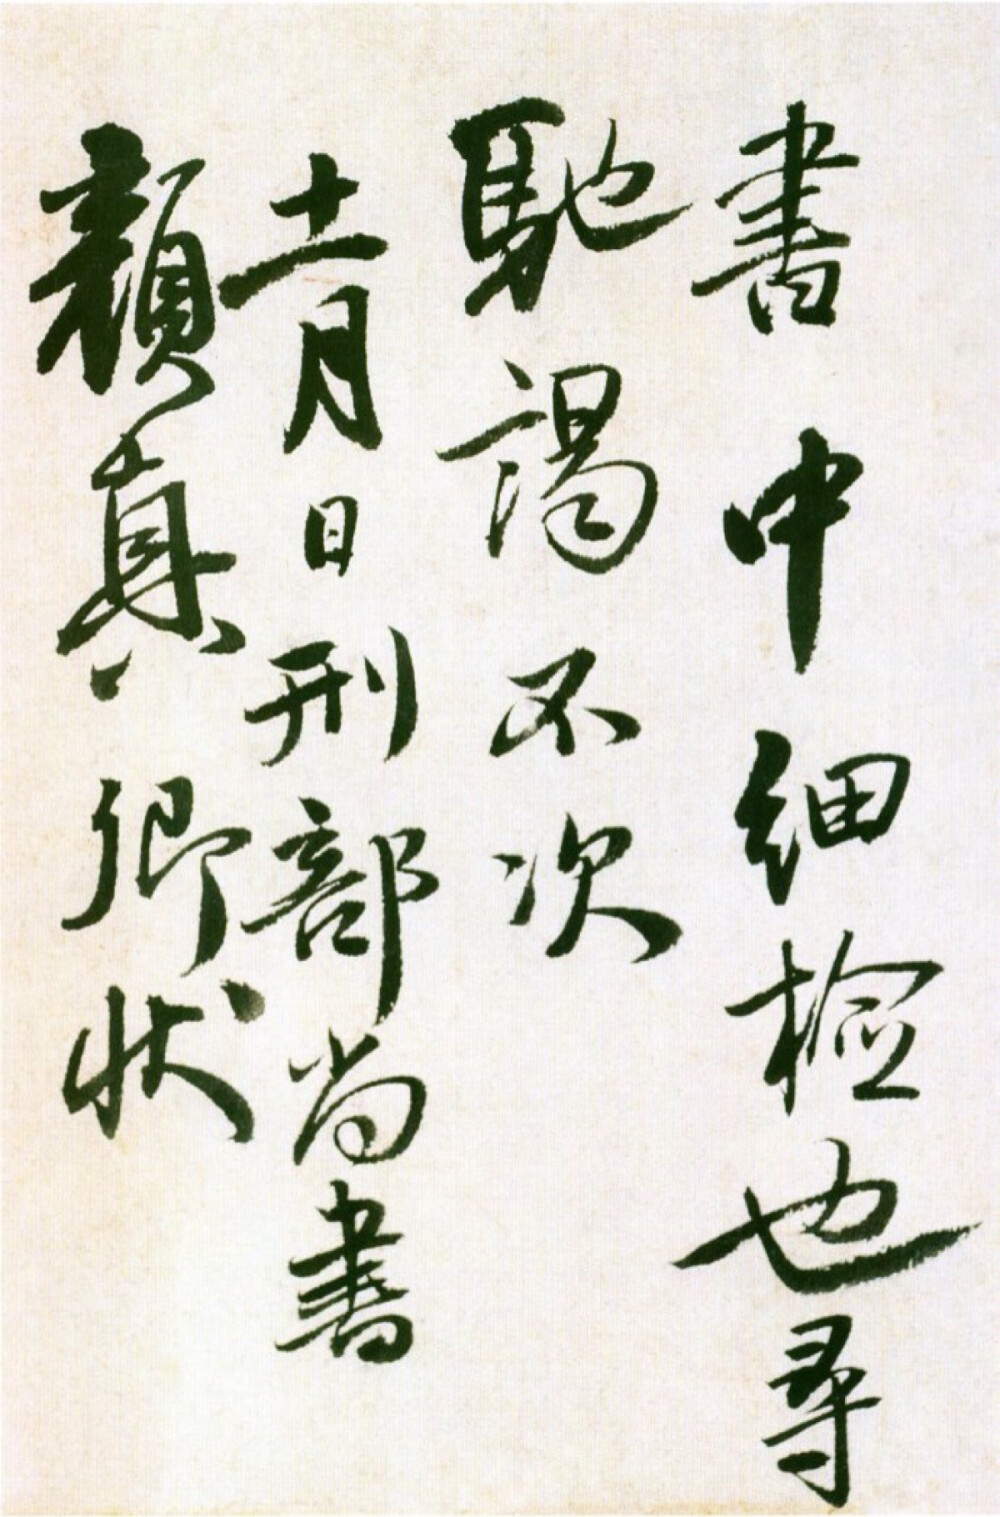 書中细检也尋
馳謁不次
十一月日刑部尚書
顏真卿状